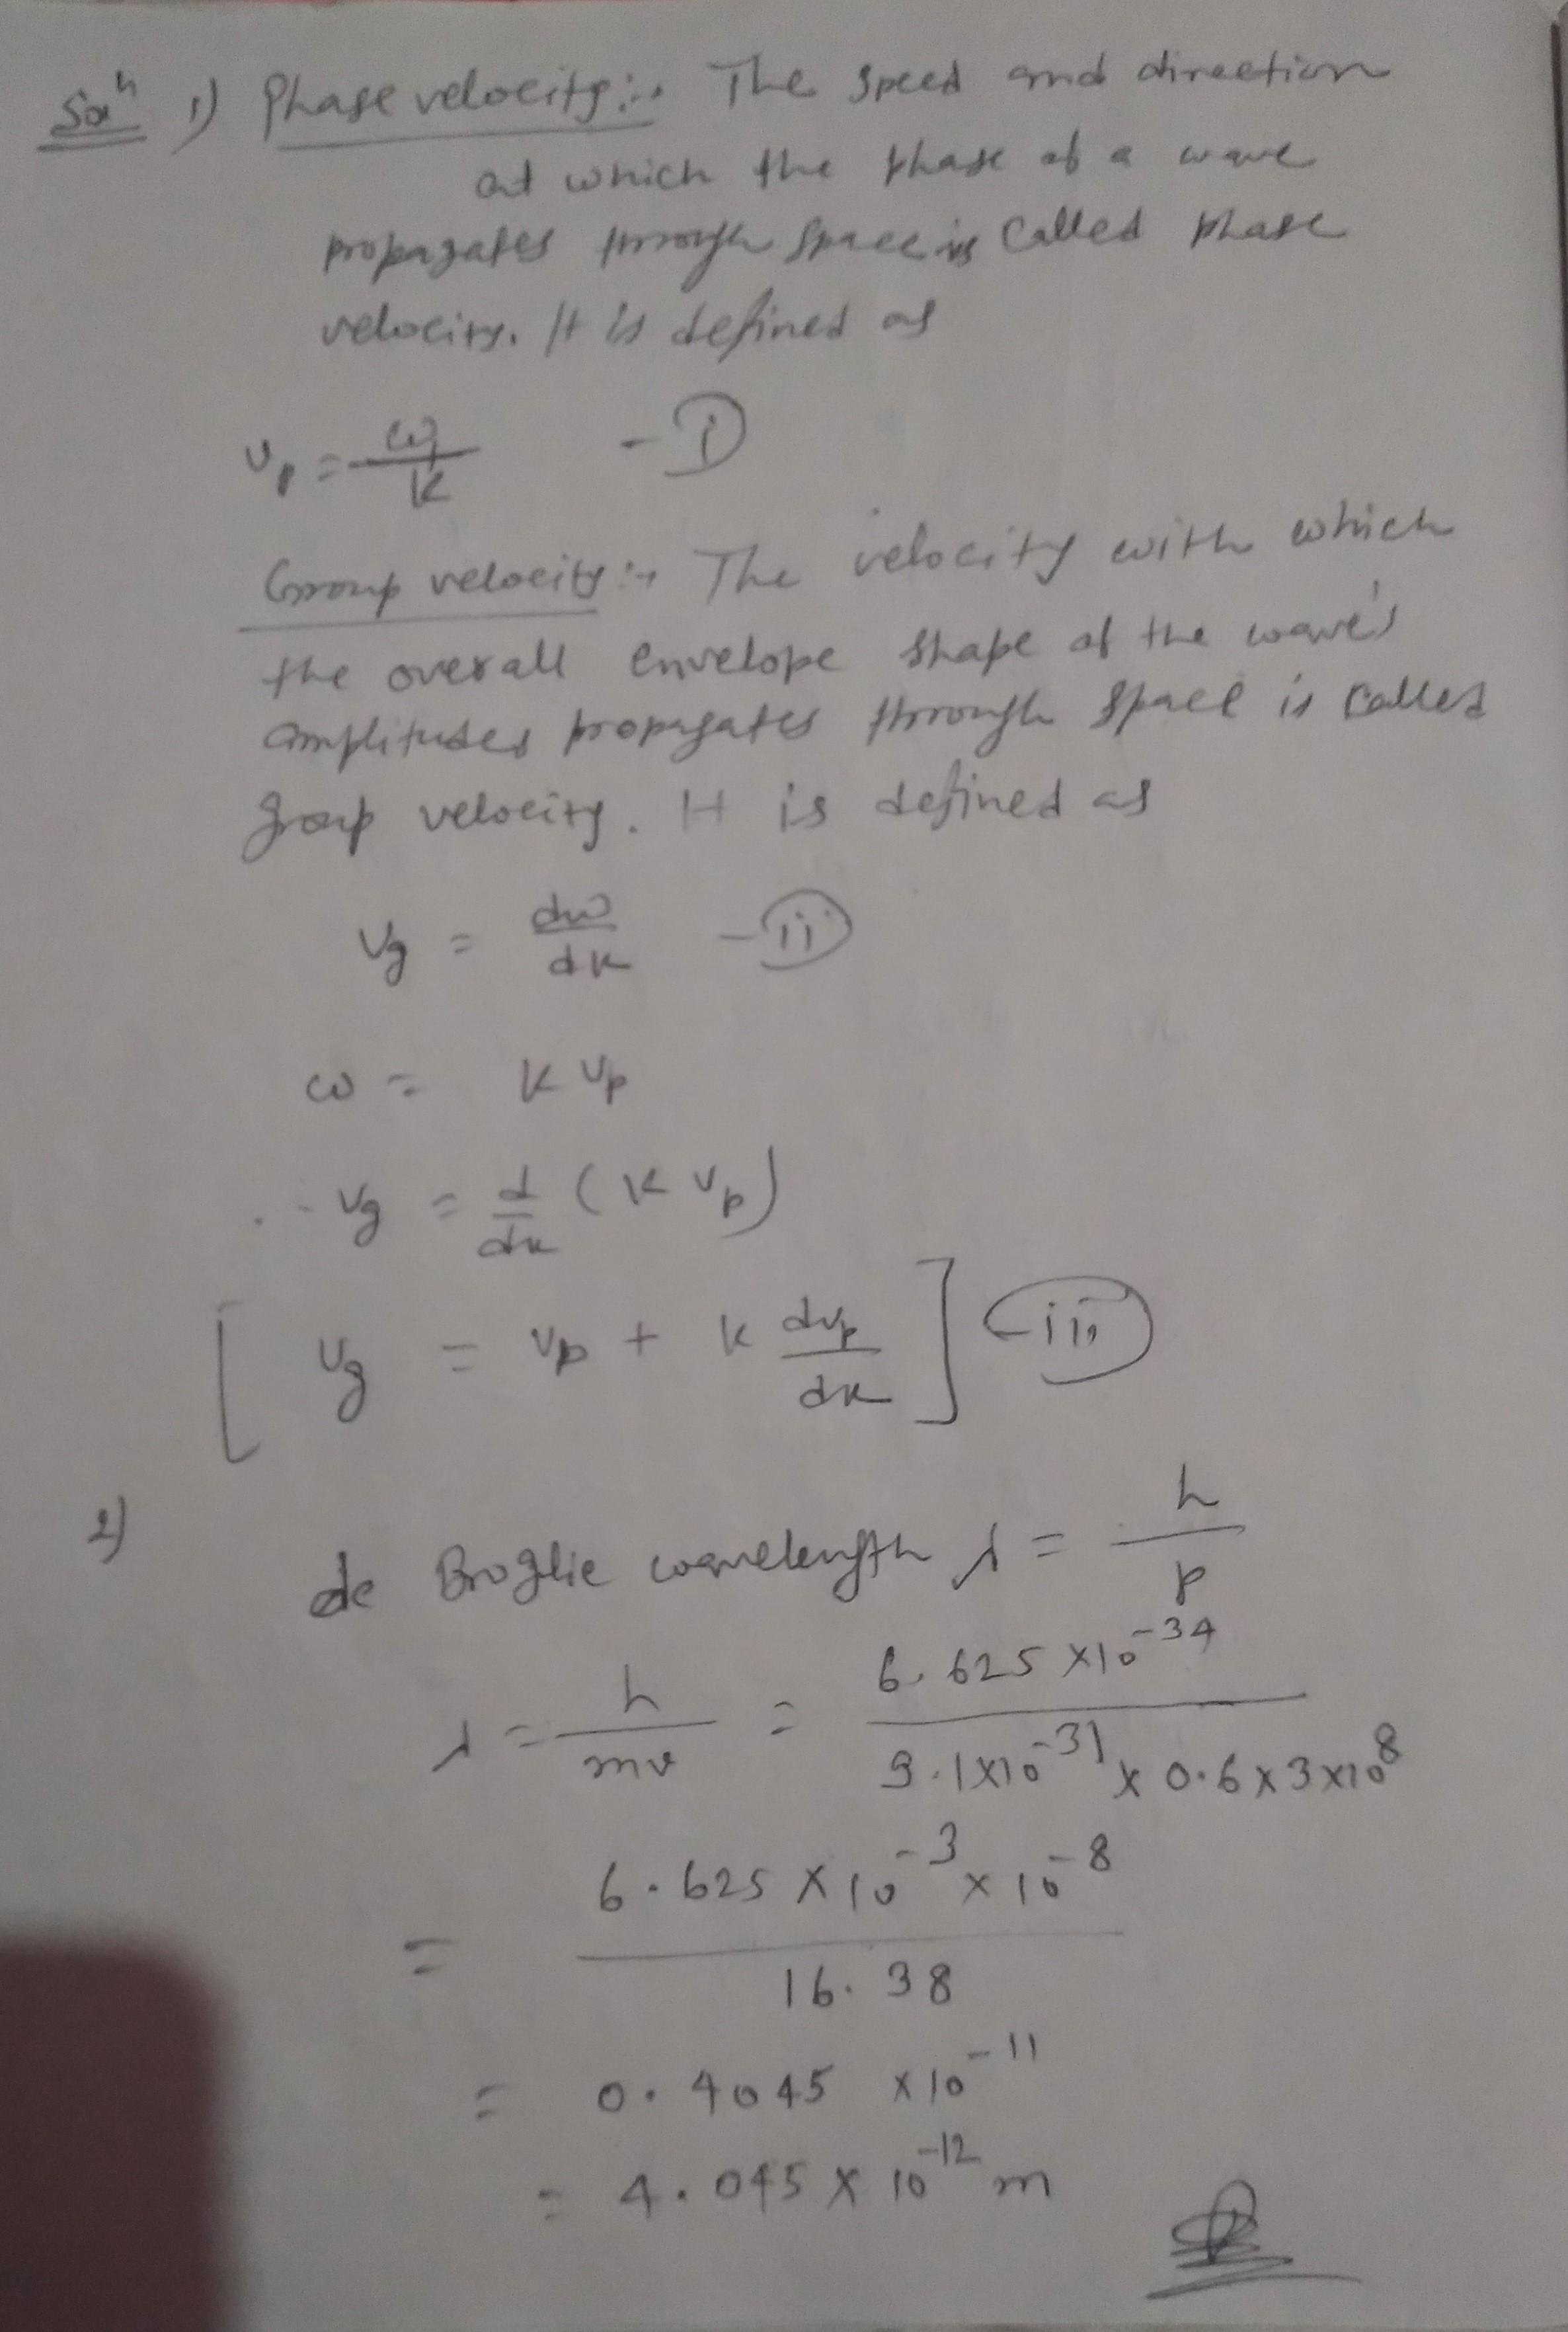 Solⁿ 1) Phase velocity :- The speed and direction
at which the phase of a wave
propagates through space is called phase
velocity. It is defined as
v_p = ω/k - (i)
Group velocity :- The velocity with which
the overall envelope shape of the wave's
amplitudes propagates through space is called
group velocity. It is defined as
v_g = dω/dk - (ii)
ω = k v_p
∴ v_g = d/dk (k v_p)
[ v_g = v_p + k dv_p/dk ] (iii)
2)
de Broglie wavelength λ = h/p
λ = h/mv = 6.625 × 10⁻³⁴ / 9.1 × 10⁻³¹ × 0.6 × 3 × 10⁸
= 6.625 × 10⁻³ × 10⁻⁸ / 16.38
= 0.4045 × 10⁻¹¹
= 4.045 × 10⁻¹² m